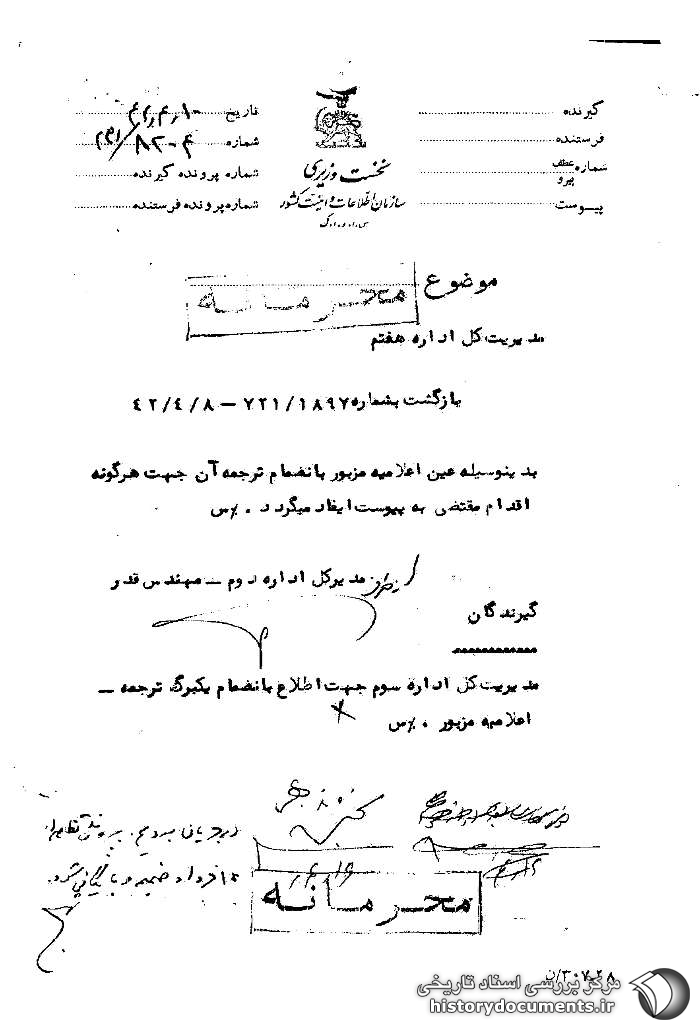 گیرنده
فرستنده
شماره عطف پیرو
پیـوست
نخست وزیری
سازمان اطلاعات و امنیت کشور
س.ا.و.ا.ک
تاریخ ۴۲٫۴٫۱۰
شماره ۸۲۰۴/۲۳۱
شماره پرونده گیرنده
شماره پرونده فرستنده
موضوع محرمانه
مدیریت کل اداره هفتم
بازگشت بشماره ۷۲۱/۱۸۹۷ – ۴۲/۴/۸
بدینوسیله عین اعلامیه مزبور بانضمام ترجمه آن جهت هرگونه
اقدام مقتضی به پیوست ایفاد میگردد . %س
از طرف مدیرکل اداره دوم – مهندس قدر
گیرندگان
مدیریت کل اداره سوم جهت اطلاع بانضمام یکبرگ ترجمه –
اعلامیه مزبور . %س
در جریان بودیم.
ضمیمه و بایگانی شود.
محرمانه
مرکز بررسی اسناد تاریخی
historydocuments.ir